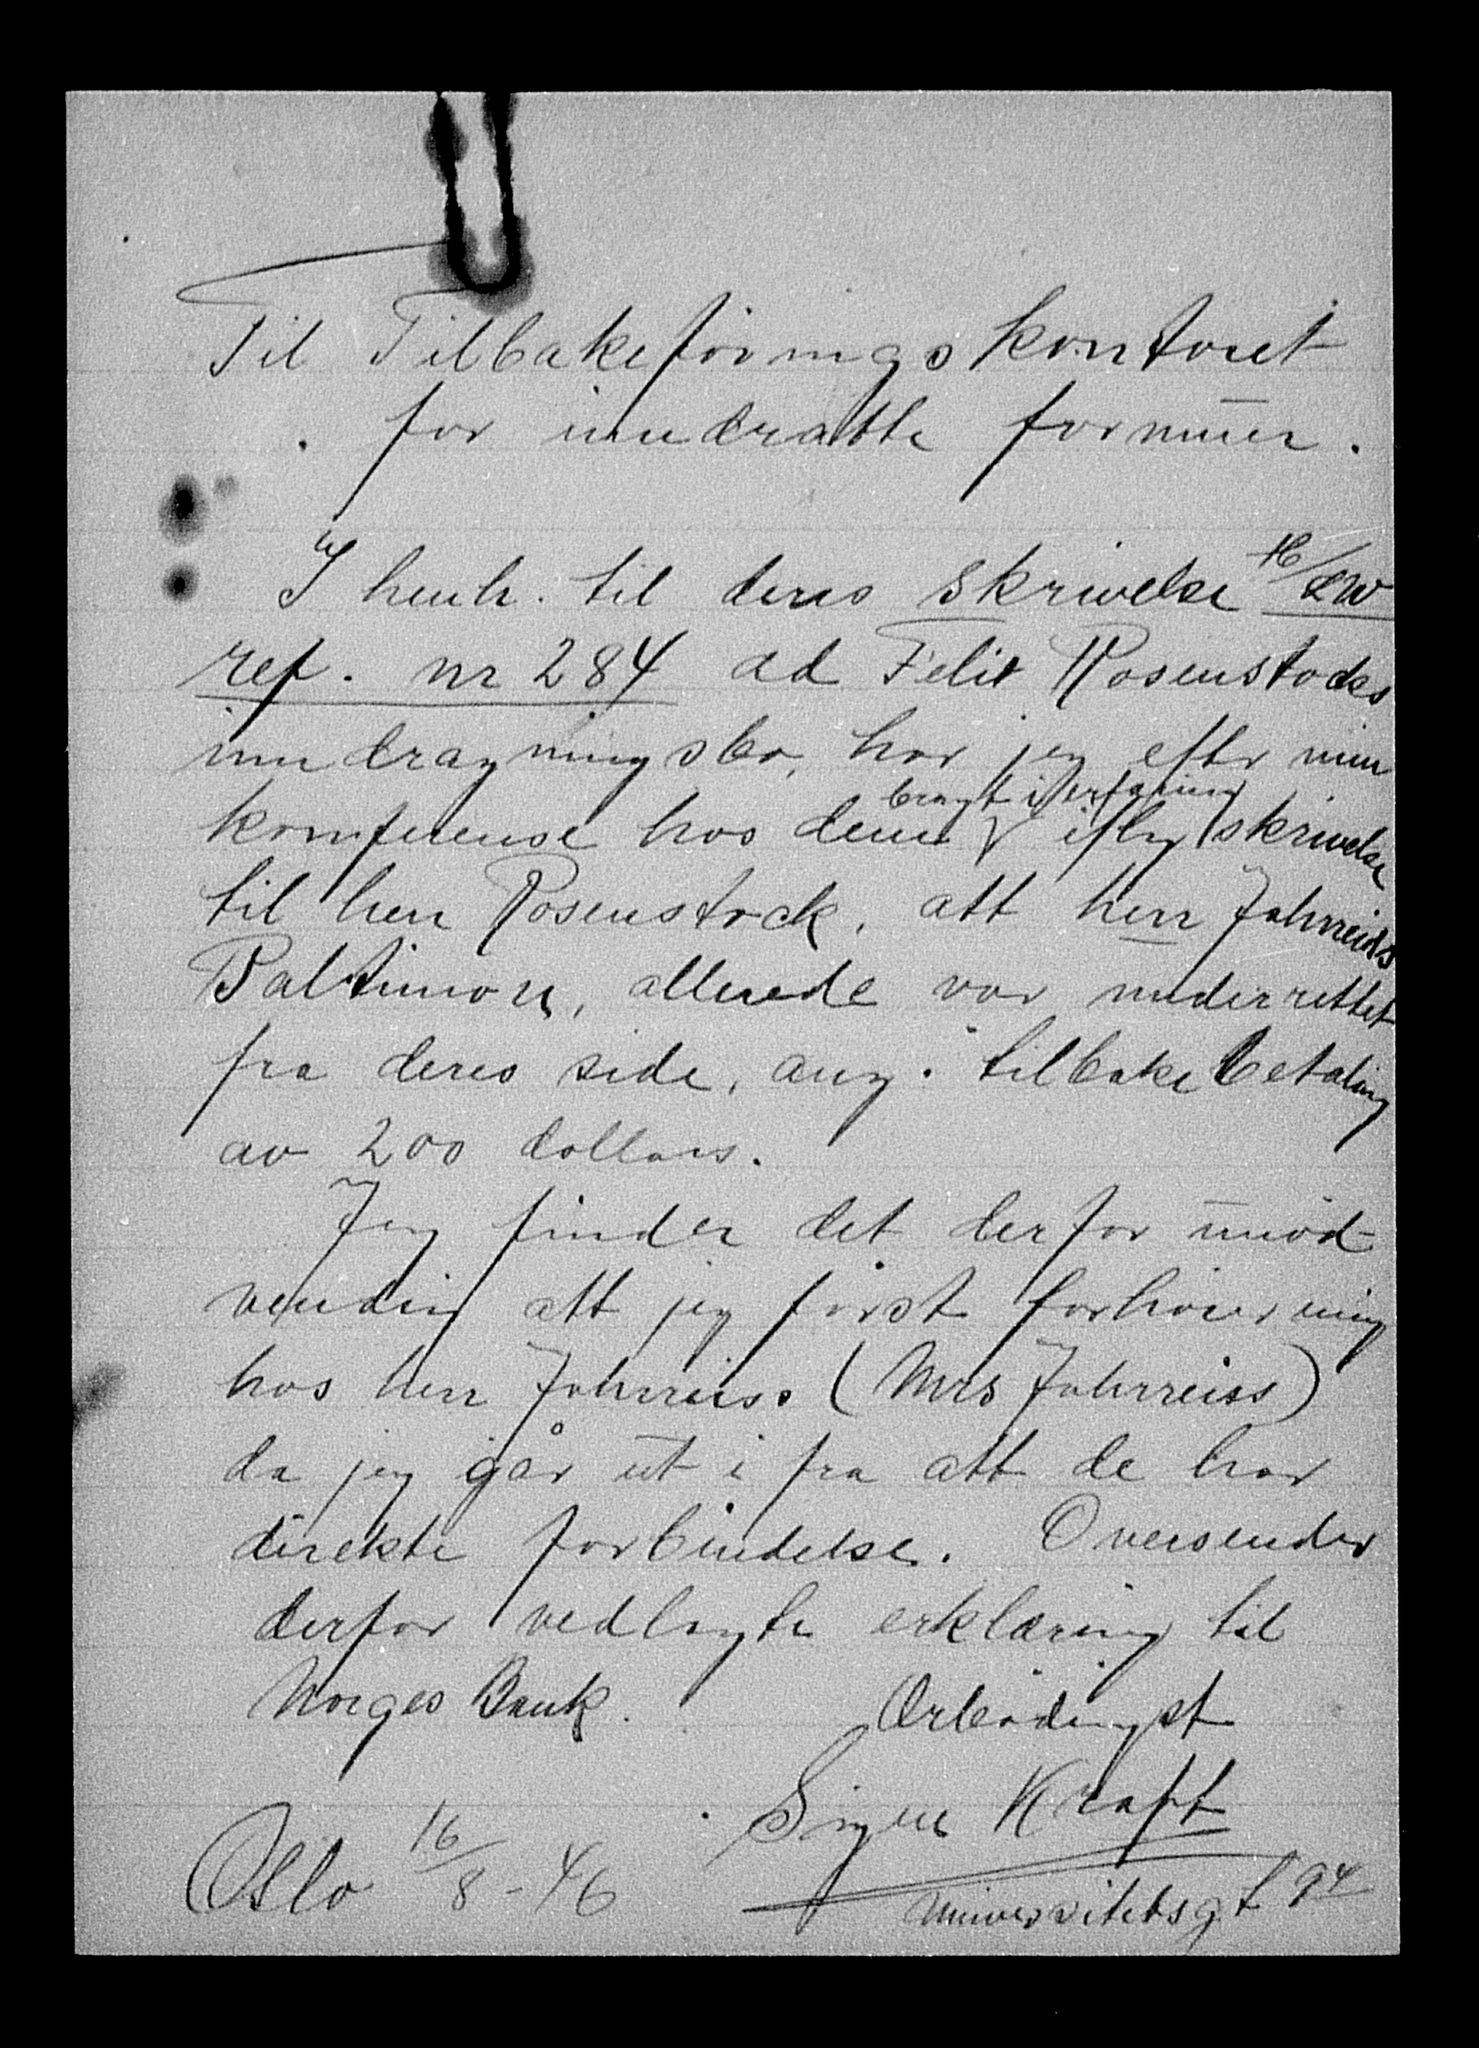 Til Tilbakeføringskontoret
for inndratte formuer.
I henh. til deres skrivelse HB/LW
ref. nr 284 ad Felix Rosenstocks
inndragningsbo, har jeg efter min
konferense hos dem bragt i erfaring ifly skrivelse
til herr Rosenstock, att herr Jahrreiss
Baltimore, allerede var underrettet
fra deres side, ang. tilbakebetaling
av 200 dollars.
Jeg finder det derfor unød-
vendig att jeg først forhører mig
hos herr Jahrreiss (Mrs Jahrreiss)
da jeg går ut i fra att de har
direkte forbindelse. Oversender
derfor vedlagte erklæring til
Norges Bank.
Ærbødigst
Signe Kraft
Oslo 16/8-46
Universitetsgt